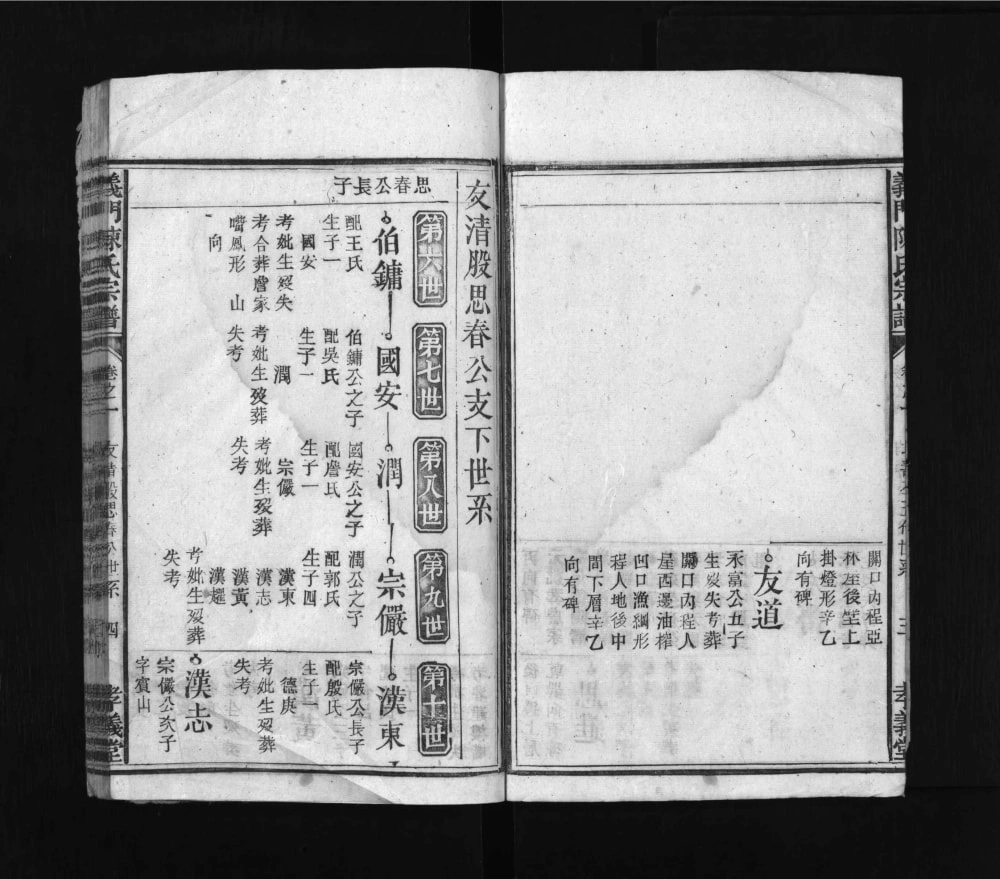 義門陳氏宗譜
三
孝義堂
開口內程亞
林屋後塋上
掛燈形辛乙
向有碑
友道
永富公五子
生歿失考葬
開口內程人
屋西邊油榨
凹口漁網形
程人地後中
間下層辛乙
向有碑
友清股思春公支下世系
第六世
第七世
第八世
第九世
第十世
思春公長子
伯鏞
配王氏
生子一
國安
考妣生歿失
考合葬詹家
嘴鳳形 山
向
國安
伯鏞公之子
配吳氏
生子一
潤
考妣生歿葬
失考
潤
國安公之子
配詹氏
生子一
宗儼
考妣生歿葬
失考
宗儼
潤公之子
配郭氏
生子四
漢東
漢志
漢黃
漢耀
考妣生歿葬
失考
漢東
宗儼公長子
配殷氏
生子一
德庚
考妣生歿葬
失考
漢志
宗儼公次子
字賓山
義門陳氏宗譜
卷之一
友清股思春公世系
四
孝義堂